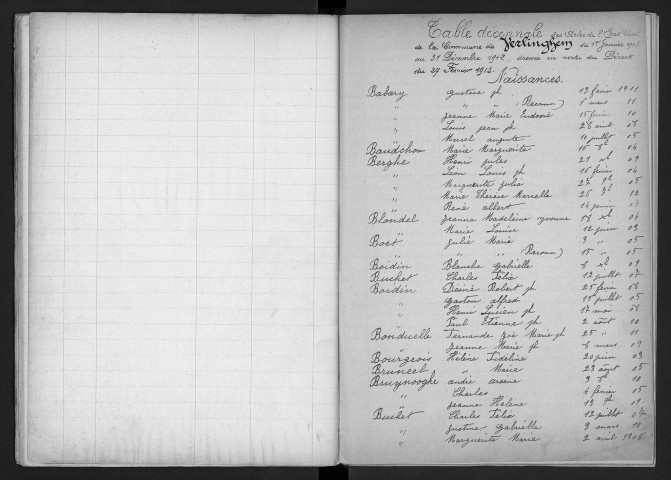 Table décennale des Actes de l'Etat Civil
de la Commune de Verlinghem du 1er Janvier 1903
au 31 Décembre 1912, dressée en vertu du Décret
du 27 Février 1913.
Naissances.
Babary Gustave jh 13 février 1911
" " " (Reconn) 1 mars 11
" Jeanne Marie 15 juin 10
" Louis Jean jh 28 avril 08
" Marcel auguste 10 juillet 05
Baudchon Marie Marguerite 04
Berghe Henri Jules 21 09
" Léon Louis jh 16 février 04
" Marguerite Julia 05
" Marie Thérèse Marcelle 26 12
" René albert 14 janvier
Blondel Jeanne Madeleine yvonne 18 04
" Marie Louise 12 juin 03
Boct Julie Marie 3 " 05
" " " (Reconn) 15 " 05
Boidin Blanche Gabrielle 09
Buchet Charles Félix 12 juillet 07
Boidin Désiré Robert jh 25 février 06
" Gaston alfred 15 juillet 05
" Henri Lucien jh 17 mai 08
" Paul Etienne jh 2 août 10
Bonduelle Fernande Zoé Marie jh 25 " 11
" Jeanne Marie jh 6 mars 09
Bourgeois Hélène Fidéline 20 juin 03
Bruneel " Marie 23 août 05
Bruynooghe andré arsène 10
" Charles 4 février 05
" Jeanne Hélène 13 09
Buchet Charles Félix 12 juillet 07
" Justine Gabrielle 3 mars 10
" Marguerite Marie 2 avril 1905